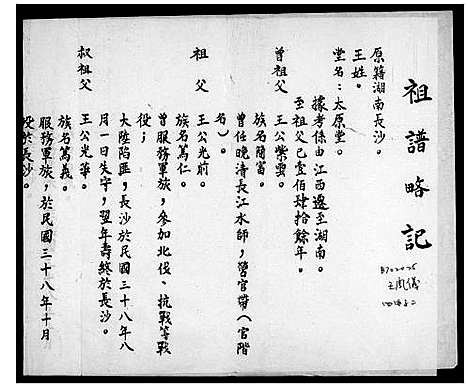 祖譜略記
原籍湖南長沙。
王姓。
堂名：太原堂。
據考係由江西遷至湖南。
至祖父已壹佰肆拾餘年。
曾祖父　王公紫雲。
族名蘭富。
曾任晚清長江水師，營官帶（官階
名）。
祖父　王公光前。
族名篤仁。
曾服務軍旅，參加北伐、抗戰等戰
役；
大陸陷匪，長沙於民國三十八年八
月一日失守，翌年壽終於長沙。
叔祖父　王公光華。
族名篤義。
服務軍旅，於民國三十八年十月
歿於長沙。